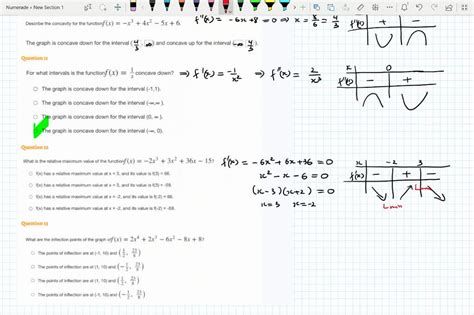 Numerade • New Section 1
Describe the concavity for the function f(x) = −x³ + 4x² − 5x + 6.
f''(x) = −6x+8 = 0 ⇒ x = 8/6 = 4/3
The graph is concave down for the interval (4/3, ∞) and concave up for the interval (−∞, 4/3).
Question 11
For what intervals is the function f(x) = 1/x concave down? ⇒ f'(x) = −1/x² ⇒ f''(x) = 2/x³
The graph is concave down for the interval (-1,1).
The graph is concave down for the interval (-∞, ∞).
The graph is concave down for the interval (0, ∞).
The graph is concave down for the interval (-∞, 0).
x 0
f''(x) − +
Question 12
What is the relative maximum value of the function f(x) = −2x³ + 3x² + 36x − 15?
f(x) has a relative maximum value at x = 3, and its value is f(3) = 66.
f(x) has a relative maximum value at x = 3, and its value is f(3) = -66.
f(x) has a relative maximum value at x = -2, and its value is f(3) = 66.
f(x) has a relative maximum value at x = -2, and its value is f(2) = -66.
f'(x) = −6x²+6x+36 = 0
x²−x−6 = 0
(x−3)(x+2) = 0
x=3 x=−2
x −2 3
f'(x) − + −
min
Question 13
What are the inflection points of the graph of f(x) = 2x⁴ + 2x³ − 6x² − 8x + 8?
The points of inflection are at (-1, 10) and
The points of inflection are at (-1, 10) and
The points of inflection are at (-1, 10) and
The points of inflection are at (-1, 10) and